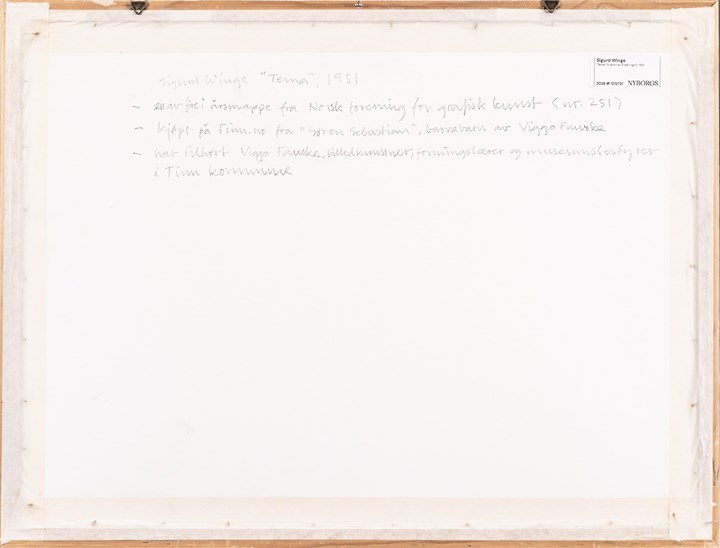 Sigurd Winge "Tema", 1951
– en av fire i årsmappe fra Norsk forening for grafisk kunst (nr. 251)
– kjøpt på Finn.no fra "Søren Sebastian", barnebarn av Viggo Fauske
– har tilhørt Viggo Fauske, billedkunstner, formingslærer og museumsbestyrer
i Tinn kommune
Sigurd Winge
NYBORGS